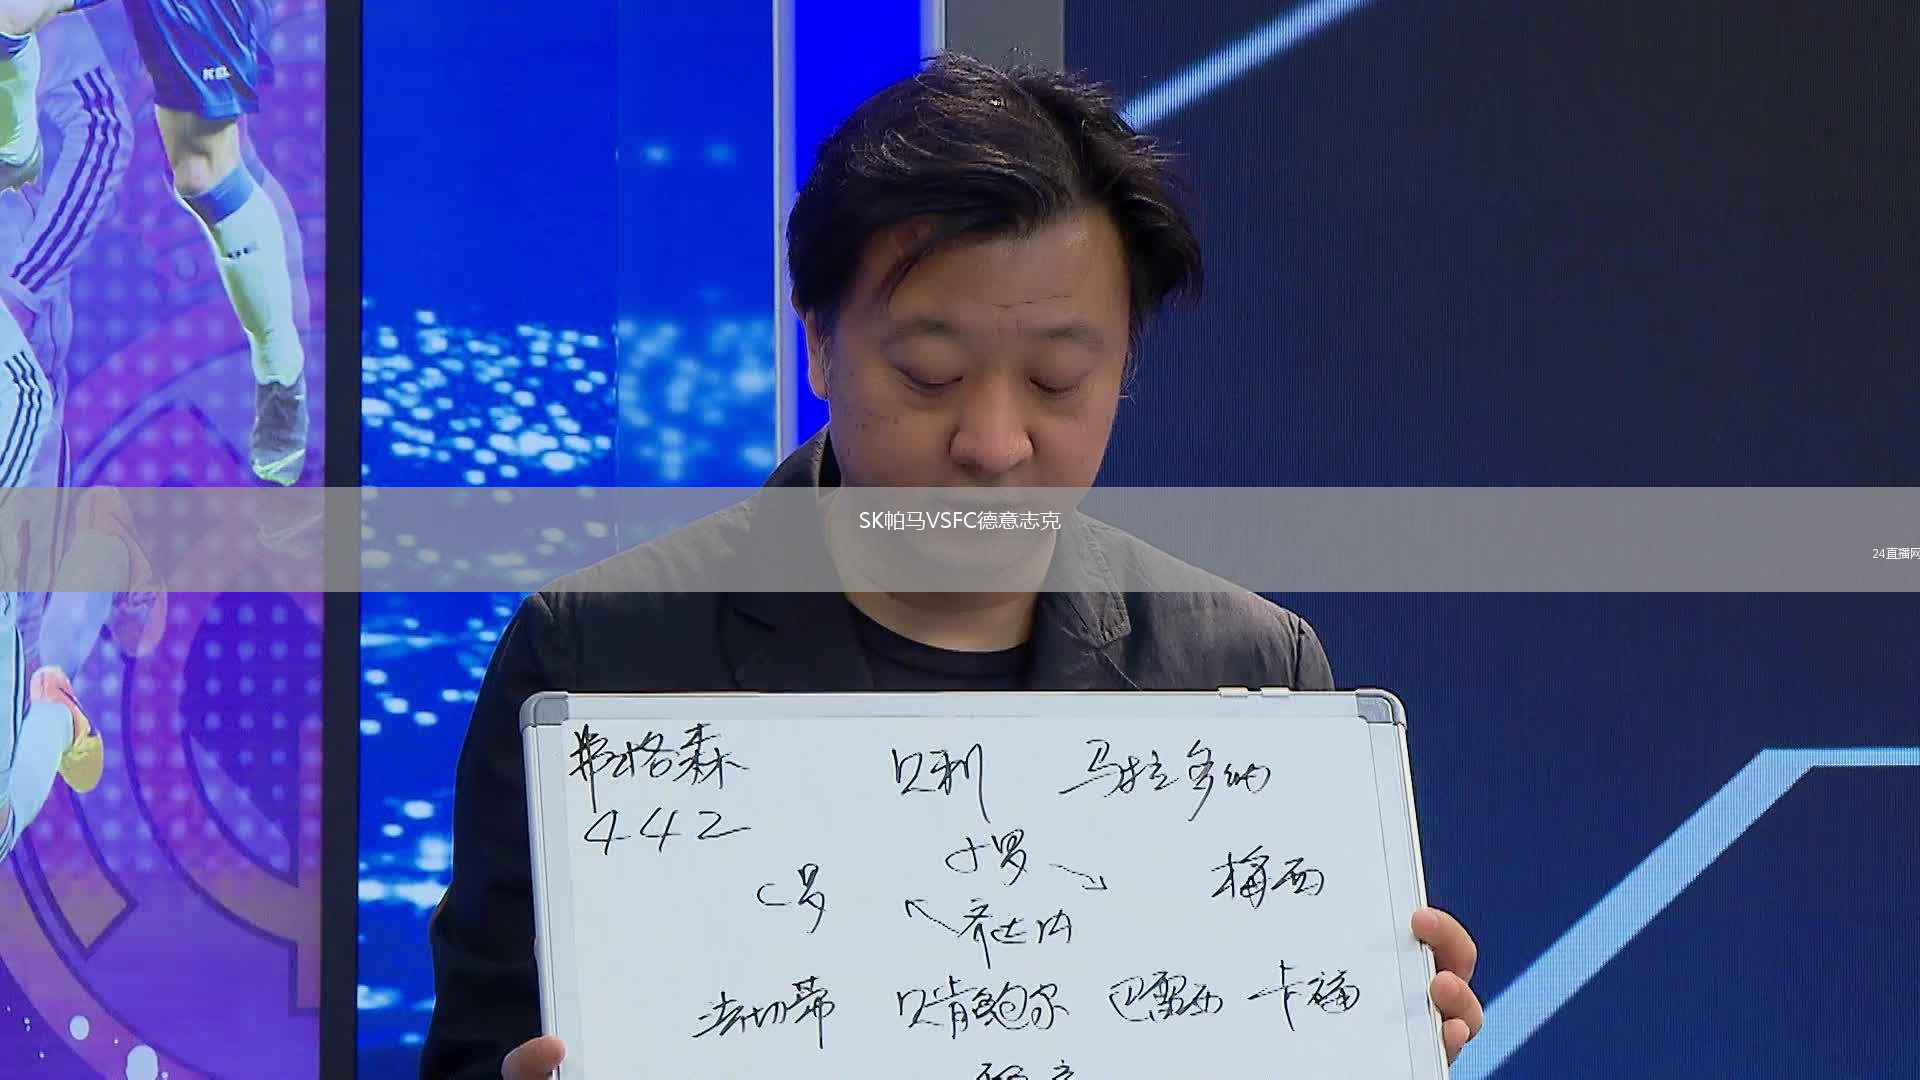 SK帕马VSFC德意志克
24直播网
弗格森 贝利 马拉多纳
442
小罗
C罗 梅西
齐达内
法切蒂 贝肯鲍尔 巴雷西 卡福